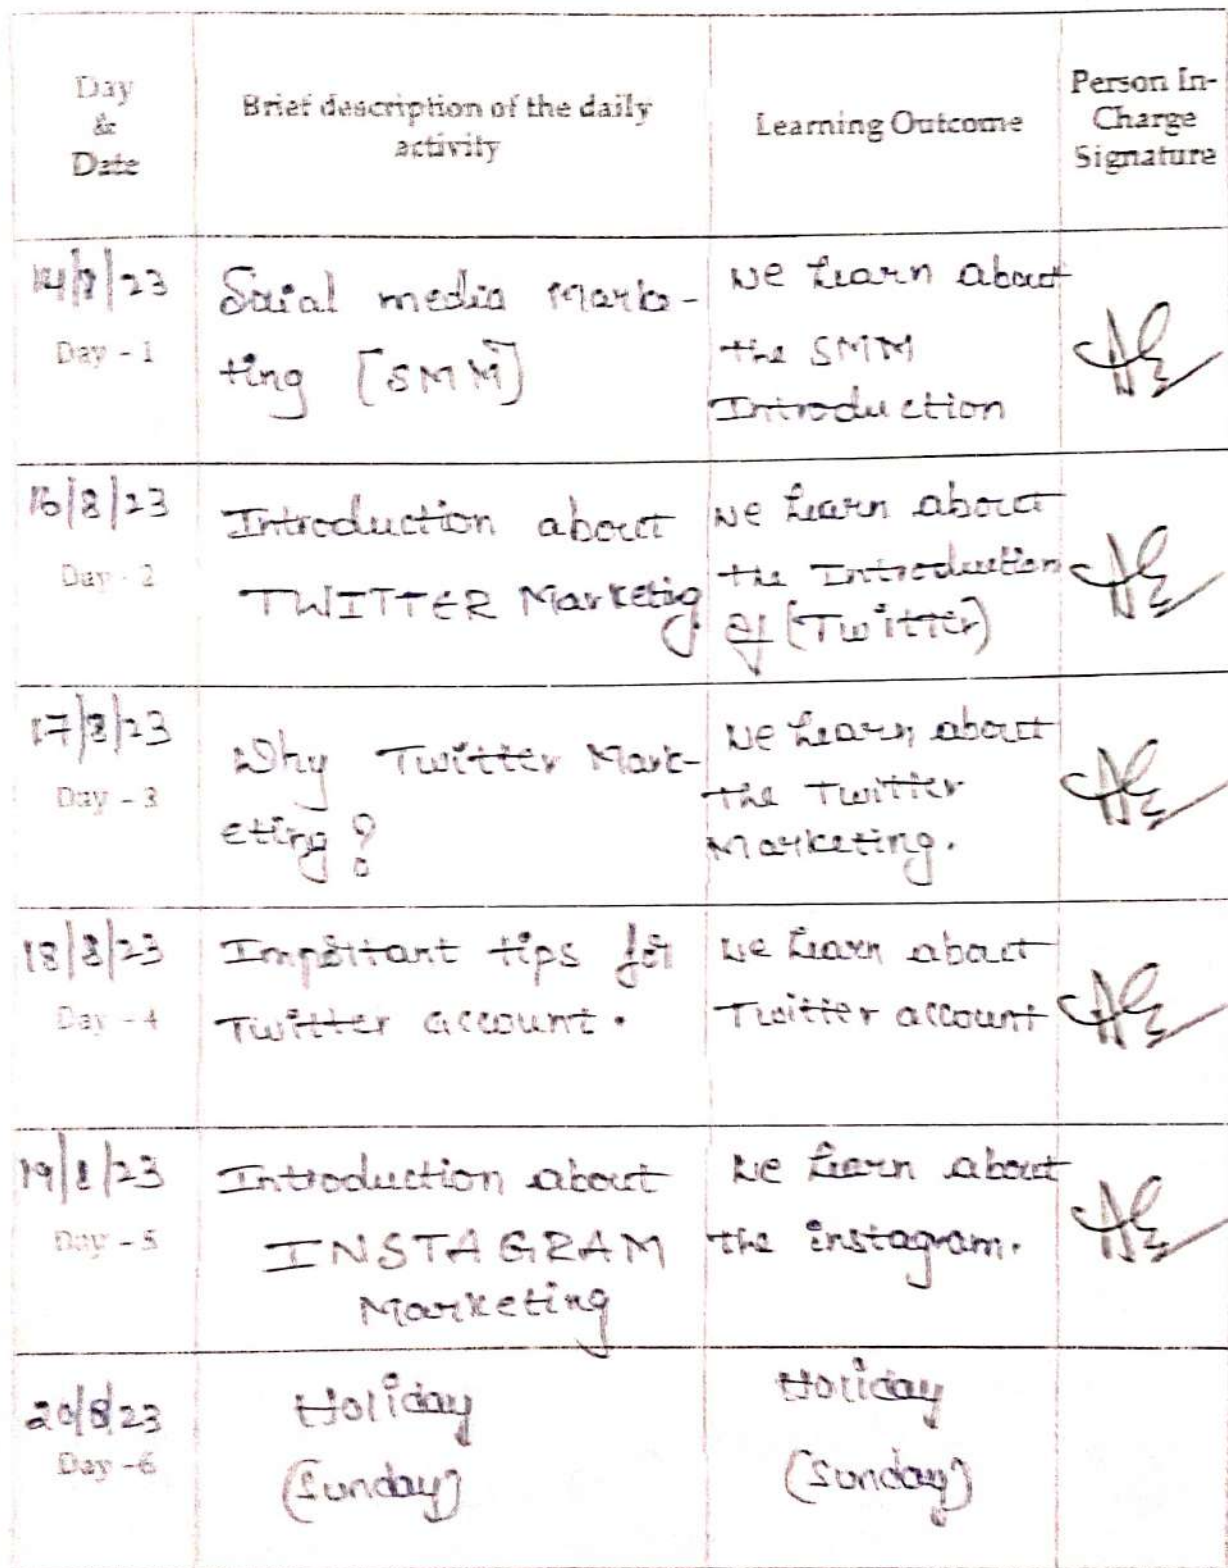 Day
&
Date
Brief description of the daily
activity
Learning Outcome
Person In-
Charge
Signature
14/8/23
Day - 1
Social media Marke-
ting [SMM]
We learn about
the SMM
Introduction
16/8/23
Day - 2
Introduction about
TWITTER Marketing
We learn about
the Introduction
of (Twitter)
17/8/23
Day - 3
Why Twitter Mark-
eting?
We learn about
the Twitter
Marketing.
18/8/23
Day - 4
Important tips for
Twitter account.
We learn about
Twitter account
19/8/23
Day - 5
Introduction about
INSTAGRAM
Marketing
We learn about
the instagram.
20/8/23
Day - 6
Holiday
(Sunday)
Holiday
(Sunday)